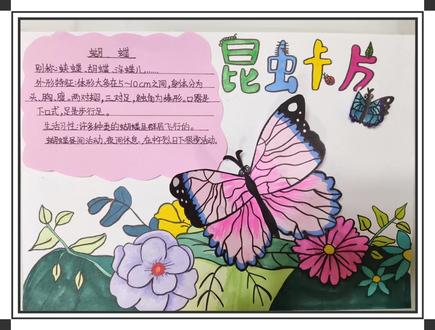 昆虫卡片
蝴 蝶
别称:蛱蝶、胡蝶、浮蝶儿……
外形特征:体形大多在5~10cm之间,身体分为
头、胸、腹。两对翅,三对足,触角为棒形。口器是
下口式,足是步行足。
生活习性:许多种类的蝴蝶是群居飞行的。
蝴蝶昼间活动,夜间休息,在烈日下很活动。